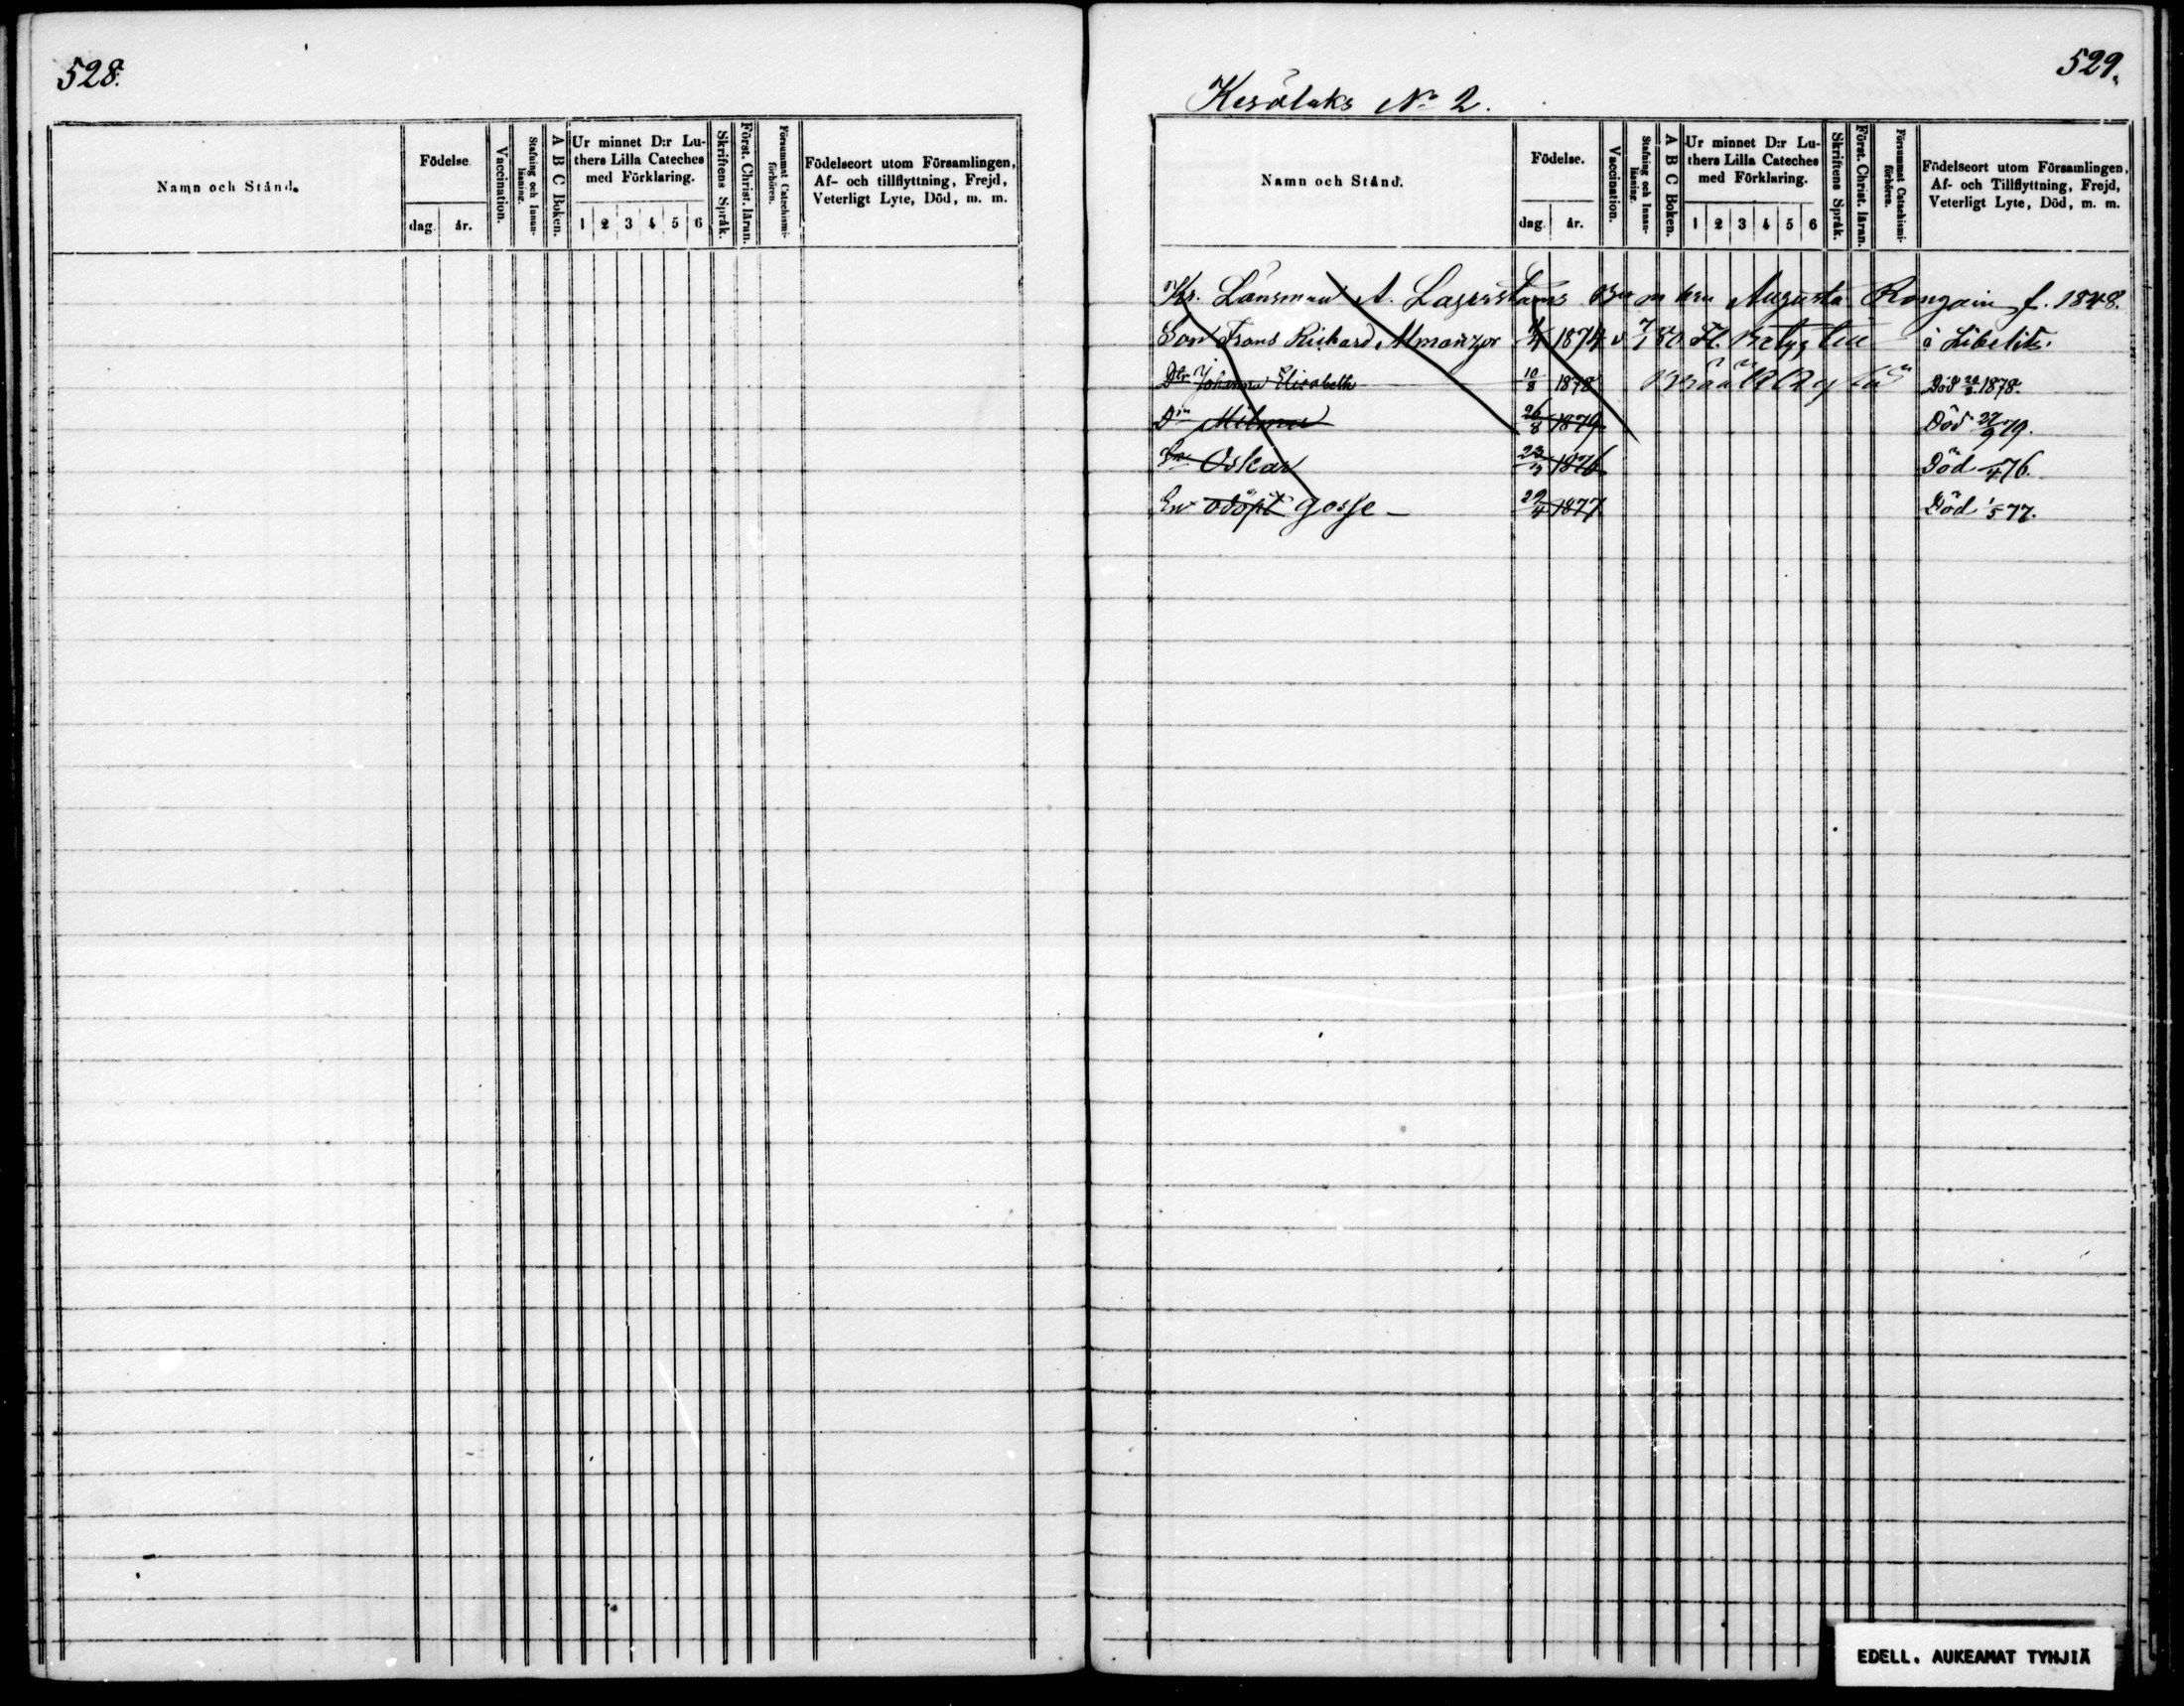 528.
Namn och Stånd.
Födelse.
dag.
år.
Vaccination.
Stafning och Innan-
läsning.
A B C Boken.
Ur minnet D:r Lu-
thers Lilla Cateches
med Förklaring.
1 2 3 4 5 6
Skriftens Språk.
Först. Christ. läran.
Försummat Catechismi-
förhören.
Födelseort utom Församlingen,
Af- och tillflyttning, Frejd,
Veterligt Lyte, Död, m. m.
529.
Kesälaks No 2.
Namn och Stånd.
Födelse.
dag.
år.
Vaccination.
Stafning och Innan-
läsning.
A B C Boken.
Ur minnet D:r Lu-
thers Lilla Cateches
med Förklaring.
1 2 3 4 5 6
Skriftens Språk.
Först. Christ. läran.
Försummat Catechismi-
förhören.
Födelseort utom Församlingen,
Af- och Tillflyttning, Frejd,
Veterligt Lyte, Död, m. m.
Kr. Länsman A. Lagerstams Augusta f. 1848.
Son Frans Richard Almanzor 1874 v Betyg till Libelits.
Dtr Johanna Elisabeth 10/8 1878 Död 1878.
Dtr Milma 26/8 1879 Död 27/9 79.
Sn Oskar 1876 Död 76.
En odöpt gosse 29/4 1877 Död 1/5 77.
EDELL. AUKEAMAT TYHJIÄ